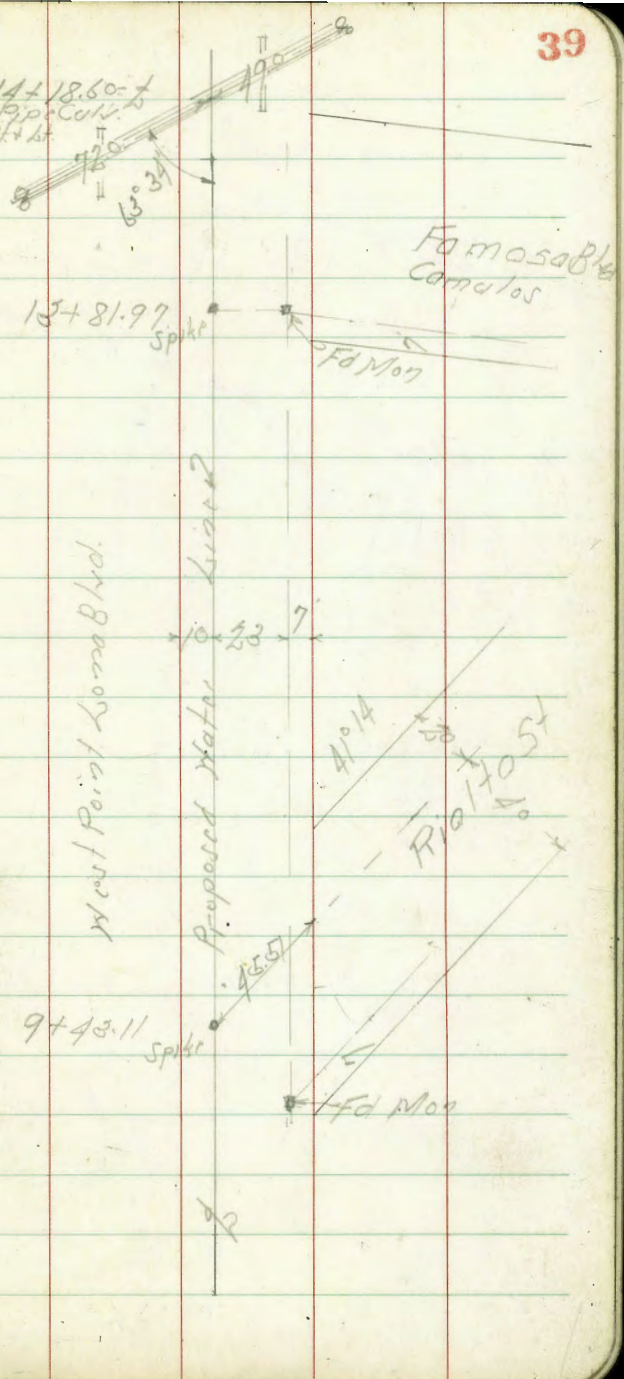 39
14+18.60=
Pipe Culv.
& Lt.
49.0
72.0
63° 34'
Famosa Blvd
Camulos
13+81.97
Spike
Fd Mon
7
West Point Loma Blvd.
Proposed Water Line
10 23 7
41° 14
20
Rialto St
40
45.51
9+43.11
Spike
7
Fd Mon